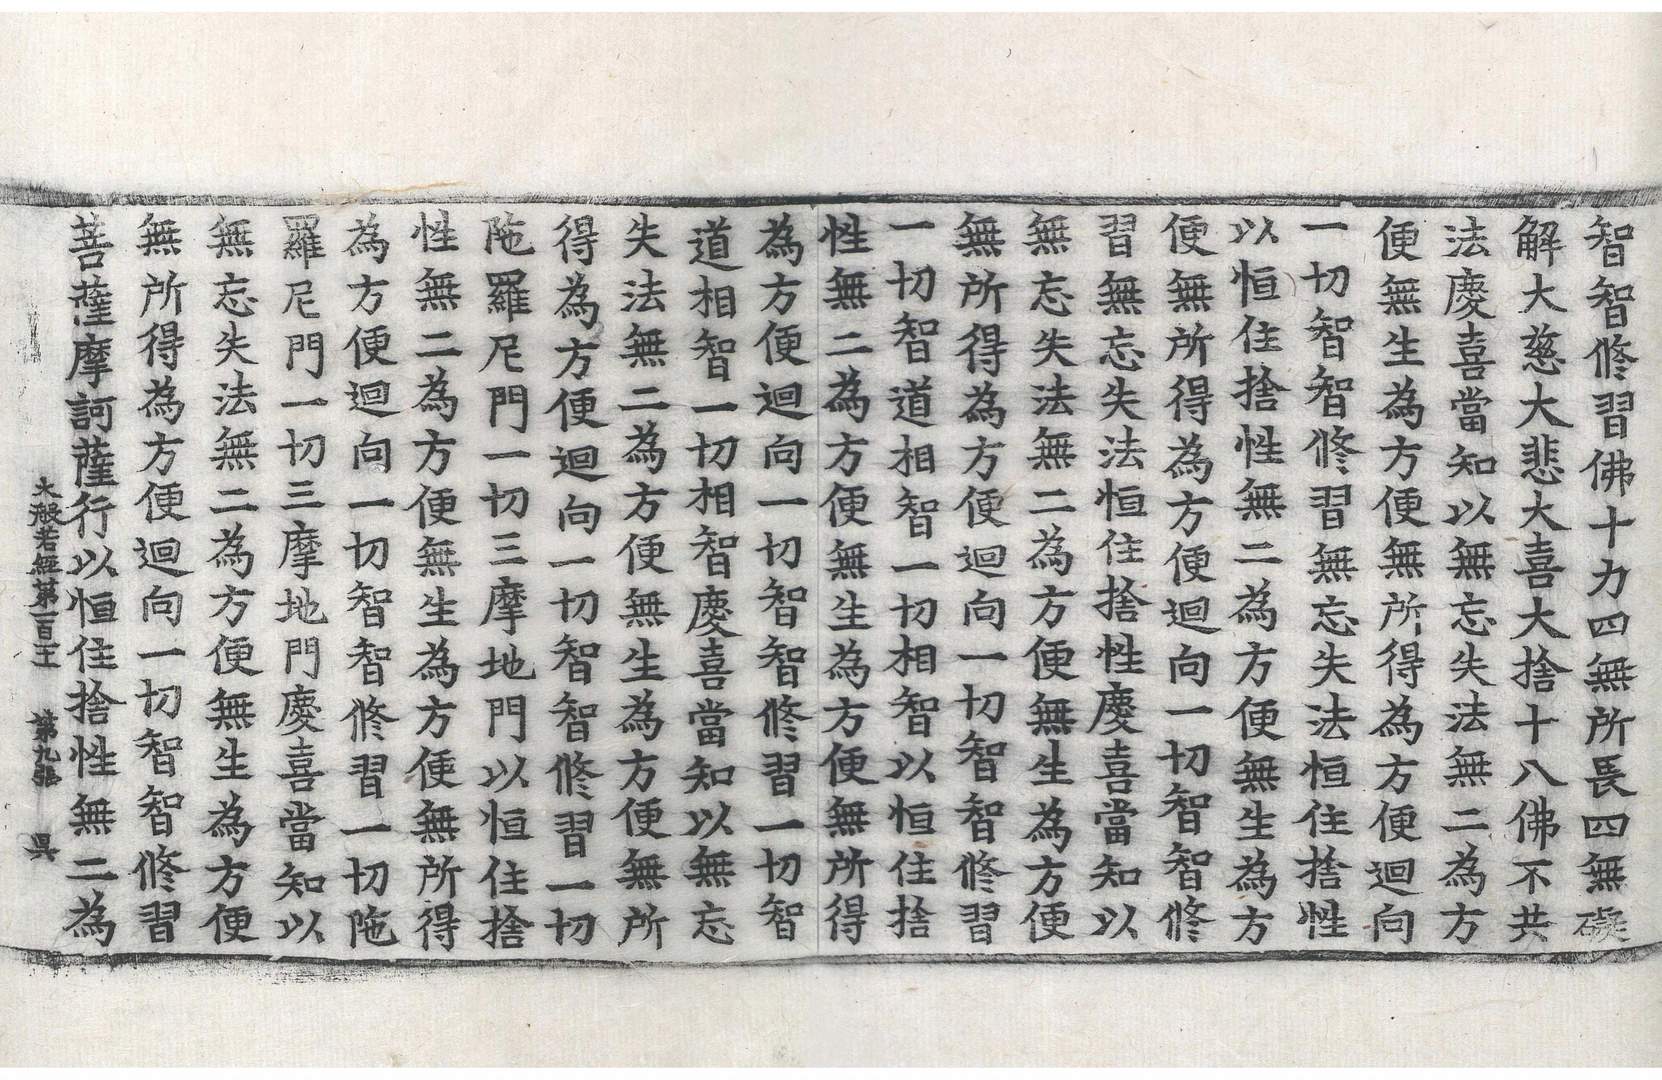 智智修習佛十力四無所畏四無礙
解大慈大悲大喜大捨十八佛不共
法慶喜當知以無忘失法無二為方
便無生為方便無所得為方便迴向
一切智智修習無忘失法恒住捨性
以恒住捨性無二為方便無生為方
便無所得為方便迴向一切智智修
習無忘失法恒住捨性慶喜當知以
無忘失法無二為方便無生為方便
無所得為方便迴向一切智智修習
一切智道相智一切相智以恒住捨
性無二為方便無生為方便無所得
為方便迴向一切智智修習一切智
道相智一切相智慶喜當知以無忘
失法無二為方便無生為方便無所
得為方便迴向一切智智修習一切
陁羅尼門一切三摩地門以恒住捨
性無二為方便無生為方便無所得
為方便迴向一切智智修習一切陁
羅尼門一切三摩地門慶喜當知以
無忘失法無二為方便無生為方便
無所得為方便迴向一切智智修習
菩薩摩訶薩行以恒住捨性無二為
大般若經第一百 第九張 昃